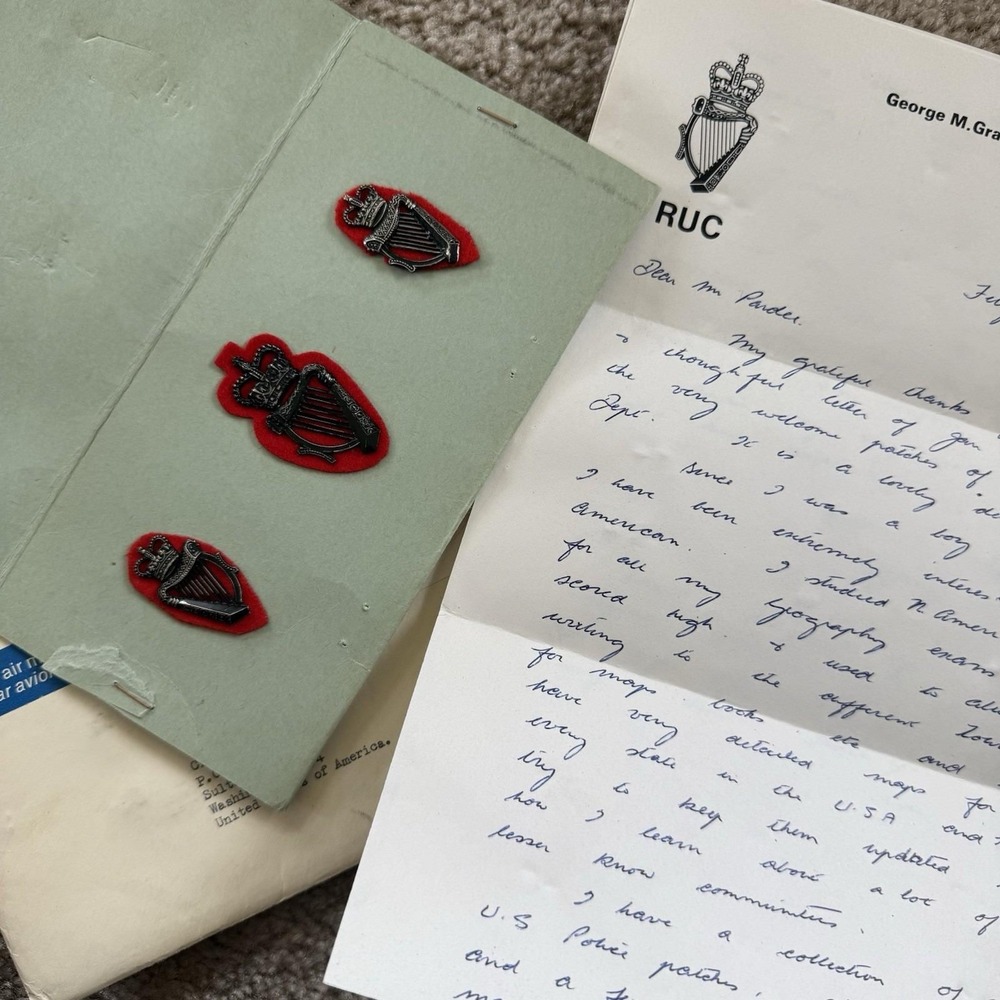 George M. Gra
RUC
Dear Mr Pardee.
My grateful thanks
& thoughtful letter of Jan
the very welcome patches of
Dept. It is a lovely de
Since I was a boy
I have been extremely interes
American. I studied N Ameri
for all my Geography exams
scored high. & used to
writing to the different
for maps books etc and
have very detailed maps for
every state in the U.S.A and
try to keep them updated
how I learn about a lot of
lesser know communities.
I have a collection of
U.S Police patches,
and a
air m
ar avion
P.
Sult
Washi
United of America.